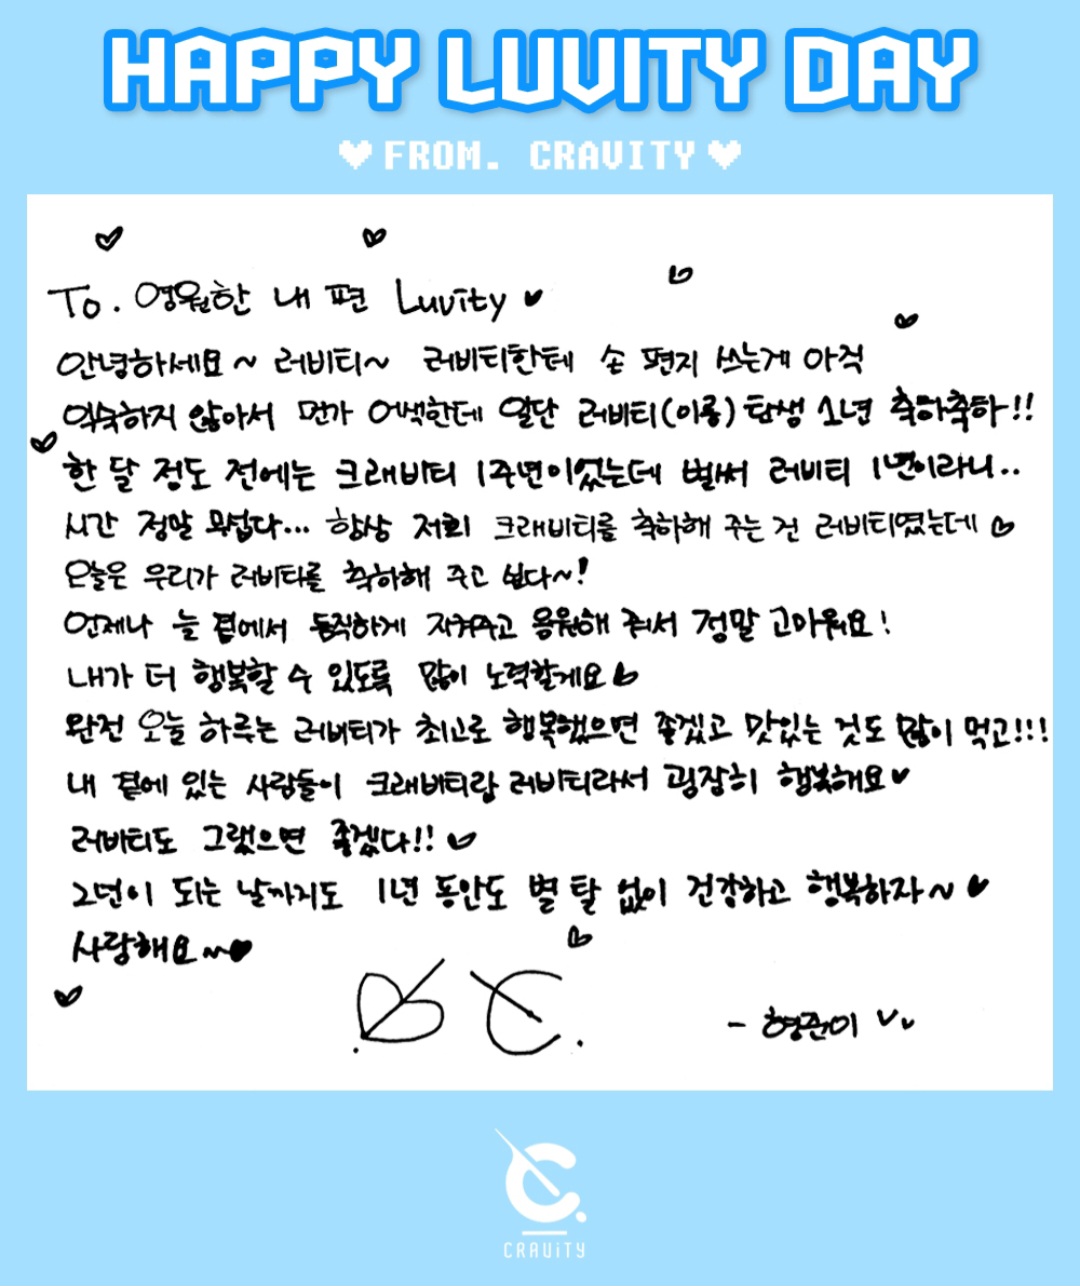 HAPPY LUVITY DAY
FROM. CRAVITY
To. 영원한 내 편 Luvity
안녕하세요~ 러비티~ 러비티한테 손 편지 쓰는게 아직
익숙하지 않아서 먼가 어색한데 일단 러비티(이름) 탄생 1년 축하축하!!
한 달 정도 전에는 크래비티 1주년이었는데 벌써 러비티 1년이라니..
시간 정말 무섭다... 항상 저희 크래비티를 축하해 주는 건 러비티였는데
오늘은 우리가 러비티를 축하해 주고 싶다~!
언제나 늘 곁에서 듬직하게 지켜주고 응원해 줘서 정말 고마워요!
내가 더 행복할 수 있도록 많이 노력할게요
완전 오늘 하루는 러비티가 최고로 행복했으면 좋겠고 맛있는 것도 많이 먹고!!!
내 곁에 있는 사람들이 크래비티랑 러비티라서 굉장히 행복해요
러비티도 그랬으면 좋겠다!!
2년이 되는 날까지도 1년 동안도 별 탈 없이 건강하고 행복하자~
사랑해요~
- 형준이
CRAViTY